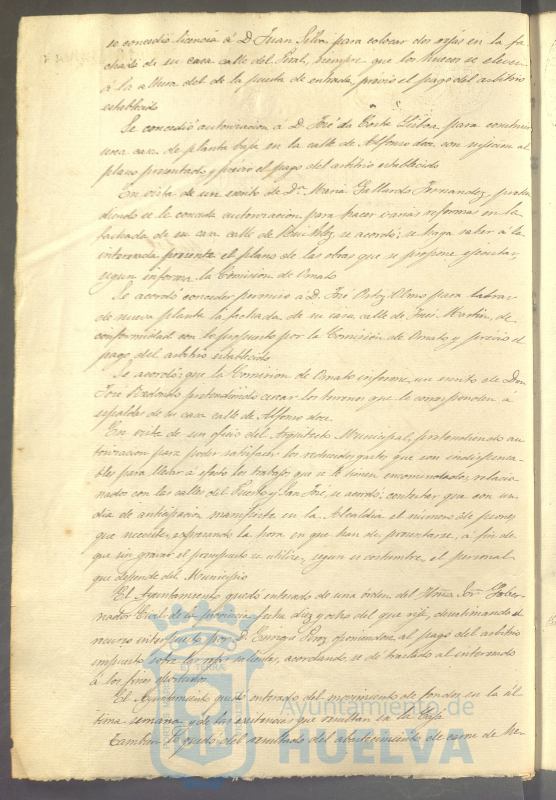 se concedió licencia á D. Juan Silva para colocar dos rejas en la fa-
chada de su casa calle del Peral, siempre que los huecos se eleven
á la altura del de la puerta de entrada, previo el pago del arbitrio
establecido
Se concedió autorización á D. José da Costa Lisboa para construir
una casa de planta baja en la calle de Alfonso doce con sujeción al
plano presentado y previo el pago del arbitrio establecido
En vista de un escrito de Dª María Gallardo Fernandez, preten-
diendo se le conceda autorización para hacer varias reformas en la
fachada de su casa calle de se acordó: se haga saber á la
interesada presente el plano de las obras que se propone ejecutar,
según informa la Comisión de Ornato
Se acordó conceder permiso á D. José para labrar
de nueva planta la fachada de su casa calle de José de
conformidad con lo propuesto por la Comisión de Ornato y previo el
pago del arbitrio establecido
Se acordó: que la Comisión de Ornato informe, un escrito de Don
José Redondo pretendiendo cercar los terrenos que le corresponden á
espaldas de su casa calle de Alfonso doce
En vista de un oficio del Arquitecto Municipal, pretendiendo au-
torización para poder satisfacer los reducidos gastos que son indispensa-
bles para llevar á efecto los trabajos que se le tienen encomendados, relacio-
nados con las calles del Puerto y San José, se acordó: contestar que con un
día de anticipación manifieste en la Alcaldía el número de peones
que necesite, expresando la hora en que han de presentarse, á fin de
que sin gravar el presupuesto se utilice, según es costumbre, el personal
que depende del Municipio
El Ayuntamiento quedó enterado de una orden del Iltmo Sor. Gober-
nador Civil de la provincia, fecha diez y ocho del que rije, desestimando el
recurso interpuesto por D. Enrique Perez oponiéndose al pago del arbitrio
impuesto sobre las rejas salientes, acordando, se dé traslado al interesado
á los fines oportunos
El Ayuntamiento quedó enterado del movimiento de fondos en la úl-
tima semana y de las existencias que resultan en la Caja
También lo quedó del resultado del abastecimiento de carne de Me-
Ayuntamiento de
HUELVA